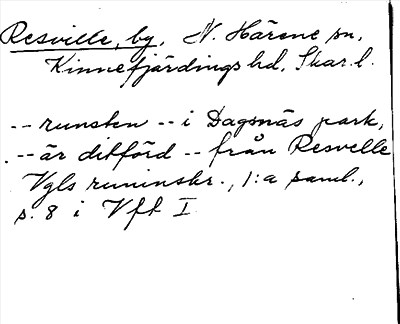 Resville, by, N. Härene sn,
Kinnefjärdings hd, Skar. l.
-- runsten -- i Dagsnäs park,
-- är ditförd -- från Resvelle
Vgls runinskr., 1:a saml.,
s. 8 i Vft I